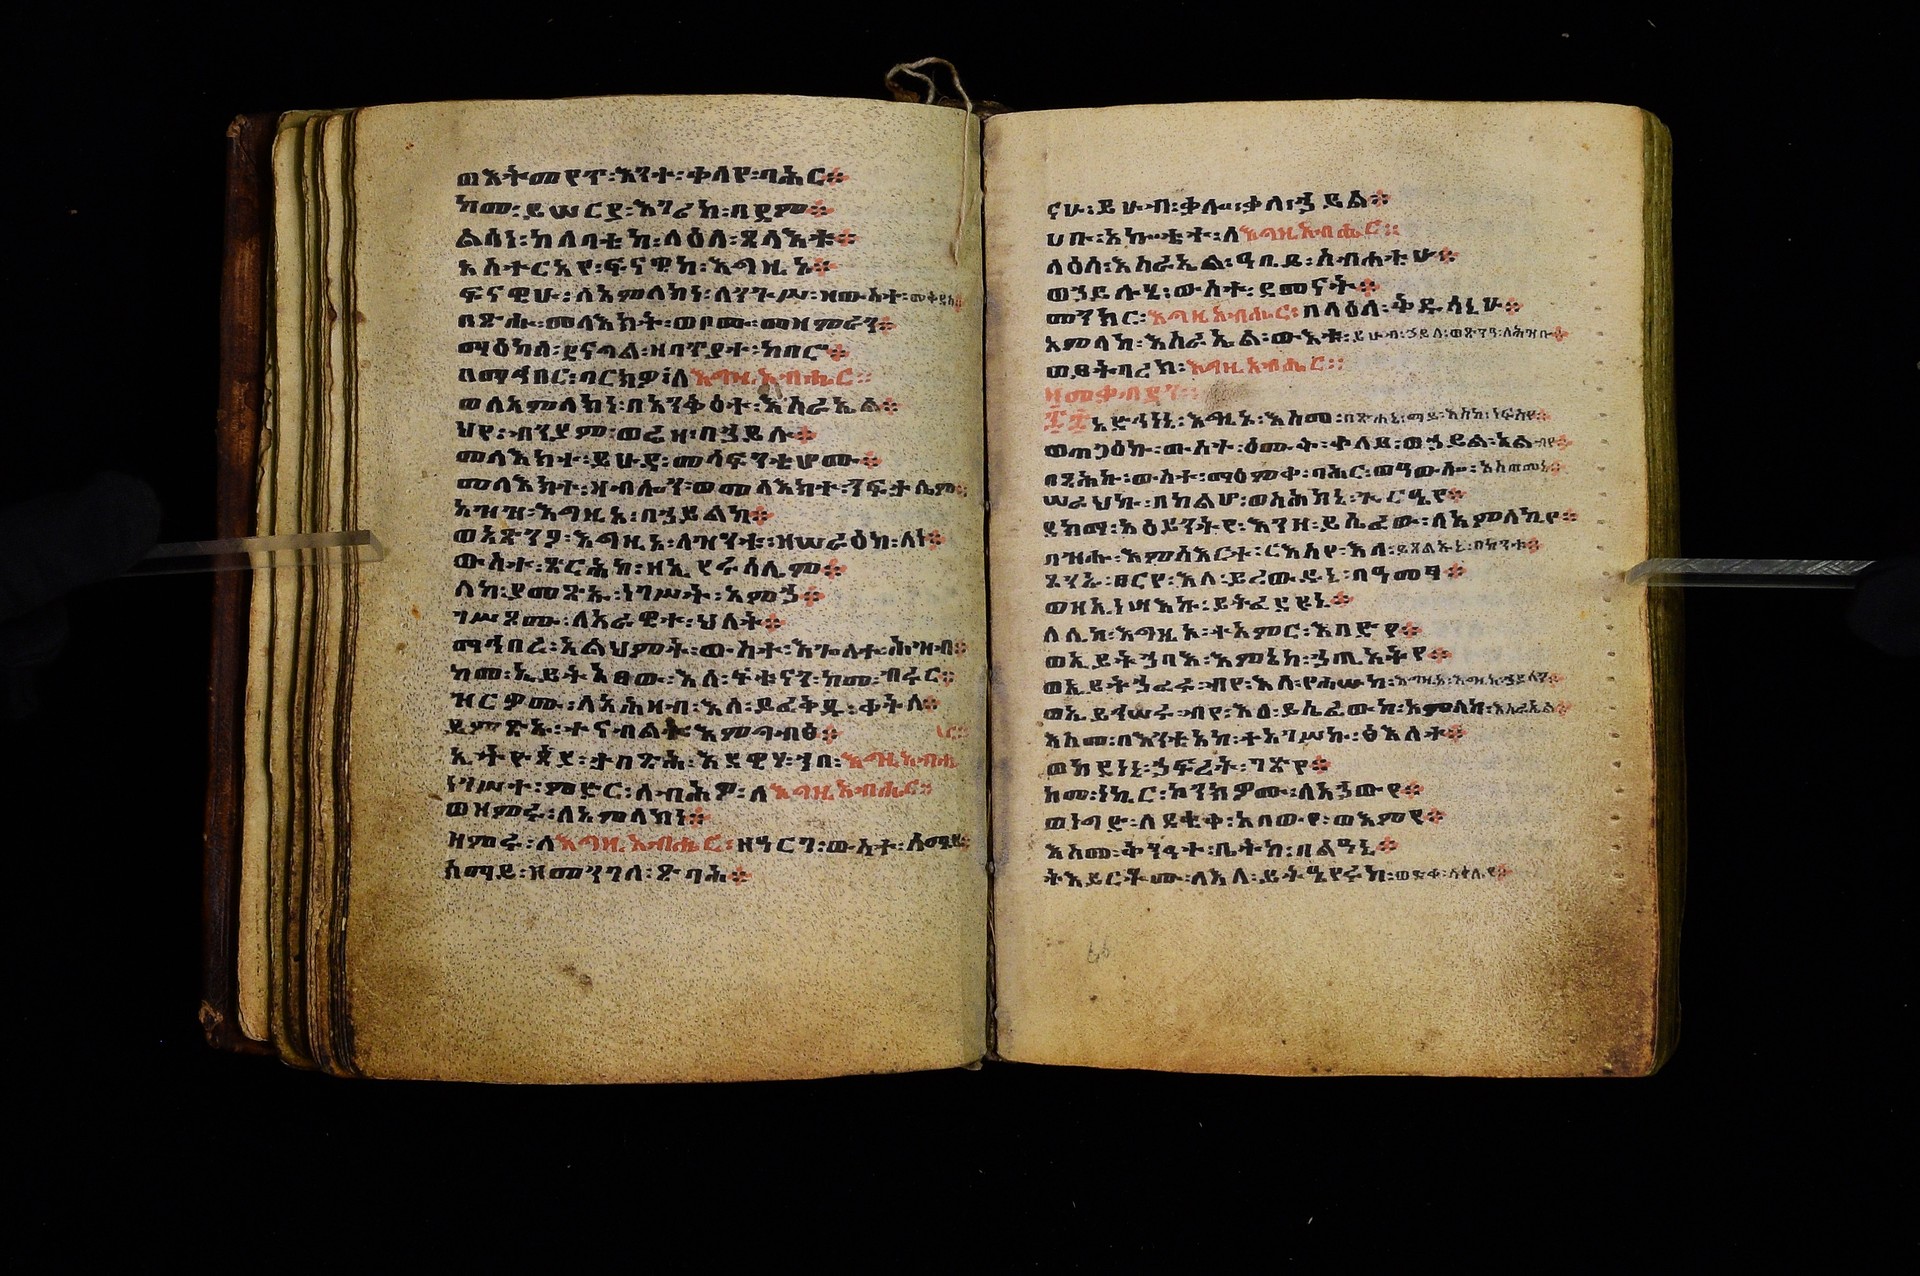 ወእትመየጥ፡እንተ፡ቀላየ፡ባሕር።
ከመ፡ይሠርፀ፡እገሪከ፡በደም።
ልሳነ፡ከለባቲከ፡ላዕለ፡ጸላእቱ።
አስተርአየ፡ፍናዊከ፡እግዚኦ።
ፍናዊሁ፡ለአምላክነ፡ለንጉሥ፡ዘውስተ፡መቅደስ።
በጽሑ፡መላእክት፡ወቦሙ፡መዝምራን።
ማዕከለ፡ደናግል፡ዘባጥያተ፡ከበሮ።
በማኅበር፡ባርክዎ፡ለእግዚአብሔር።
ወለአምላክነ፡በአንቅዕተ፡እስራኤል።
ህየ፡ብንያም፡ወሬዛ፡በኀይሉ።
መላእክተ፡ይሁዳ፡መሳፍንቲሆሙ።
መላእክተ፡ዛብሎን፡ወመላእክተ፡ንፍታሌም።
አዝዝ፡እግዚኦ፡በኀይልከ።
ወአጽንዖ፡እግዚኦ፡ለዝንቱ፡ዘሠራዕከ፡ለነ።
ውስተ፡ጽርሕከ፡ዘኢየሩሳሌም።
ለከ፡ያመጽኡ፡ነገሥት፡አምኃ።
ገሥጾሙ፡ለአራዊተ፡ህለት።
ማኅበረ፡አልህምት፡ውስተ፡እጐለተ፡ሕዝብ።
ከመ፡ኢይትአፀው፡እለ፡ፍቱናን፡ከመ፡ብሩር።
ዝርዎሙ፡ለአሕዛብ፡እለ፡ይፈቅዱ፡ቀትለ።
ይምጽኡ፡ተናብልት፡እምግብፅ።
ኢትዮጵያ፡ታበጽሕ፡እደዊሃ፡ኀበ፡እግዚአብሔር።
ነገሥተ፡ምድር፡ሰብሕዎ፡ለእግዚአብሔር።
ወዘምሩ፡ለአምላክነ።
ዘምሩ፡ለእግዚአብሔር፡ዘዓርገ፡ውስተ፡ሰማይ።
ሰማይ፡ዘመንገለ፡ጽባሕ።
ናሁ፡ይሁብ፡ቃሎ፡ቃለ፡ኃይል።
ሀቡ፡አኰቴተ፡ለእግዚአብሔር።
ላዕለ፡እስራኤል፡ዓቢይ፡ስብሐቲሁ።
ወኃይሉሂ፡ውስተ፡ደመናት።
መንክር፡እግዚአብሔር፡በላዕለ፡ቅዱሳኒሁ።
አምላክ፡እስራኤል፡ውእቱ፡ይሁብ፡ኃይለ፡ወጽንዓ፡ለሕዝቡ።
ወይትባረክ፡እግዚአብሔር።
ዘመቃብያን።
አድኅነኒ፡እግዚኦ፡እስመ፡በጽሐኒ፡ማይ፡እስከ፡ነፍስየ።
ወጠጋዕኩ፡ውስተ፡ዕሙቅ፡ቀላይ፡ወኃይል፡አልብየ።
በጻሕኩ፡ውስተ፡ማዕምቀ፡ባሕር፡ወዓውሎ፡አስጠመኒ።
ሠራህኩ፡በከልሆ፡ወስሕከኒ፡ጕርዔየ።
ደክማ፡አዕይንትየ፡እንዘ፡ይሴፈው፡ለአምላኪየ።
በዝሑ፡እምስእርተ፡ርእስየ፡እለ፡ይጸልኡኒ፡በከንቱ።
ጸንኡ፡ፀርየ፡እለ፡ይረውዱኒ፡በዓመፃ።
ወዘኢነሣእኩ፡ይትፈደዩኒ።
ለሊከ፡እግዚኦ፡ተአምር፡እበድየ።
ወኢይትኃባእ፡እምኔከ፡ኃጢአትየ።
ወኢይትኃፈሩ፡ብየ፡እለ፡የሐሡከ፡እግዚኦ፡እግዚአ፡ኃያላን።
ወኢይኅሠሩ፡ብየ፡እለ፡ይሴፈውከ፡አምላከ፡እስራኤል።
እስመ፡በእንቲአከ፡ተአገሥኩ፡ፅእለተ።
ወከደነኒ፡ኃፍረት፡ገጽየ።
ከመ፡ነኪር፡ኮንክዎሙ፡ለአኃውየ።
ወነግድ፡ለደቂቀ፡አቡየ፡ወእምየ።
እስመ፡ቅንዓተ፡ቤትከ፡በልዓኒ።
ትእይርቶሙ፡ለእለ፡ይትዔየሩከ፡ወድቀ፡ላዕሌየ።